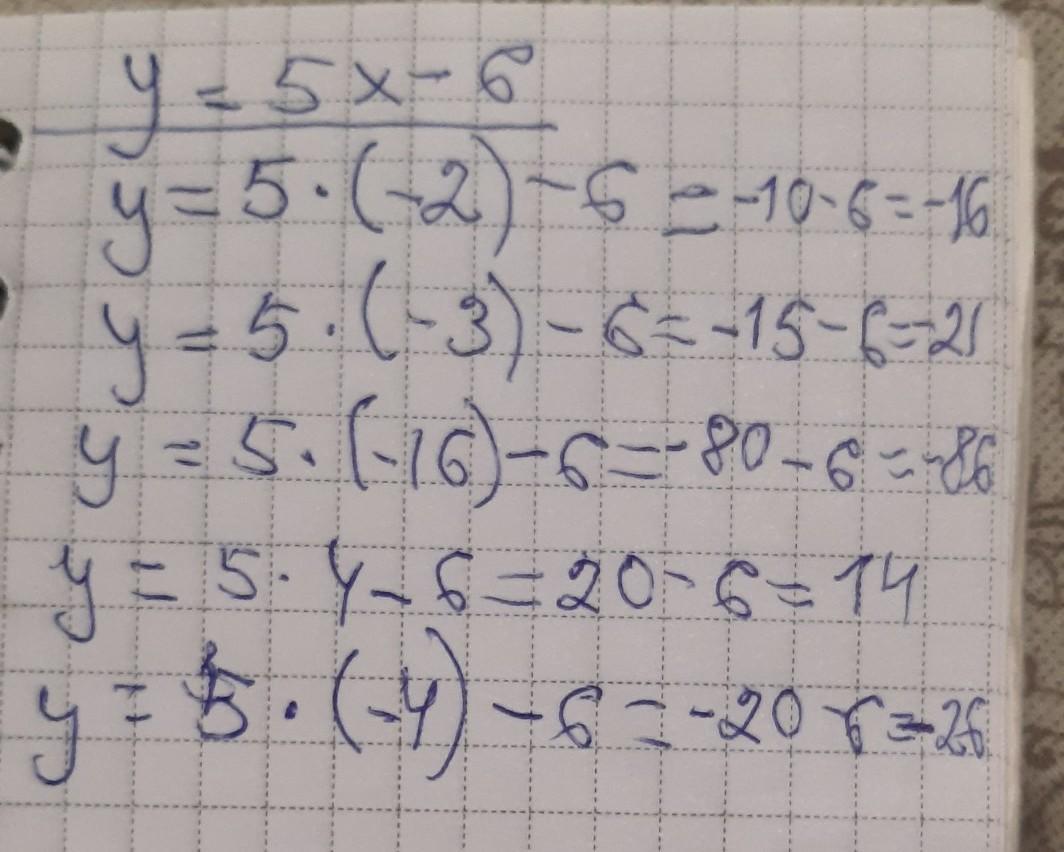 y = 5x - 6
y = 5 · (-2) - 6 = -10 - 6 = -16
y = 5 · (-3) - 6 = -15 - 6 = -21
y = 5 · (-16) - 6 = -80 - 6 = -86
y = 5 · 4 - 6 = 20 - 6 = 14
y = 5 · (-4) - 6 = -20 - 6 = -26